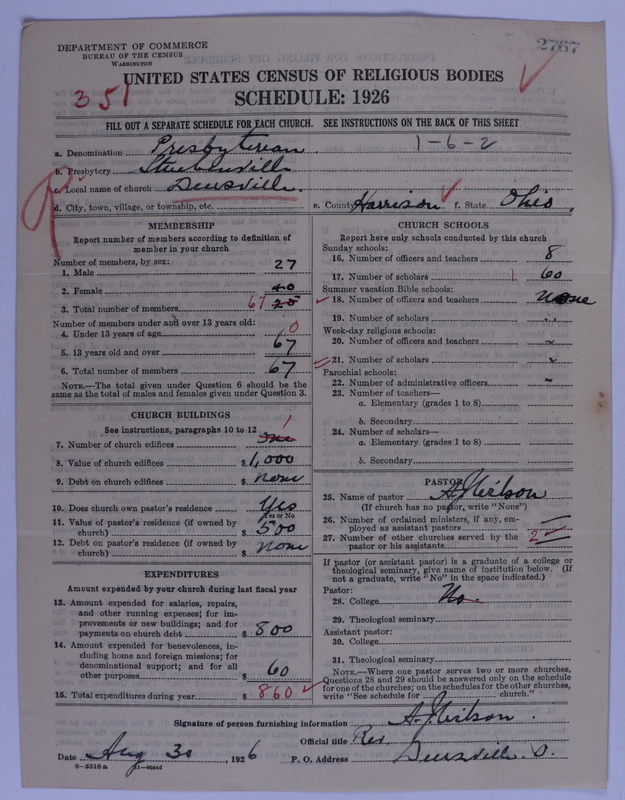 2767
DEPARTMENT OF COMMERCE
BUREAU OF THE CENSUS
WASHINGTON
UNITED STATES CENSUS OF RELIGIOUS BODIES
351
SCHEDULE: 1926
FILL OUT A SEPARATE SCHEDULE FOR EACH CHURCH. SEE INSTRUCTIONS ON THE BACK OF THIS SHEET
1-6-2
a. Denomination Presbyterian
b. Presbytery Steubenville
c. Local name of church Deersville.
d. City, town, village, or township, etc.
e. County Harrison f. State Ohio
MEMBERSHIP
Report number of members according to definition of member in your church
Number of members, by sex:
1. Male 27
2. Female 40
3. Total number of members 67
Number of members under and over 13 years old:
4. Under 13 years of age 0
5. 13 years old and over 67
6. Total number of members 67
NOTE.—The total given under Question 6 should be the
same as the total of males and females given under Question 3.
CHURCH BUILDINGS
See instructions, paragraphs 10 to 12
7. Number of church edifices one 1
8. Value of church edifices $ 1,000
9. Debt on church edifices $ none
10. Does church own pastor's residence Yes
Yes or No
11. Value of pastor's residence (if owned by
church) $ 500
12. Debt on pastor's residence (if owned by
church) $ none
EXPENDITURES
Amount expended by your church during last fiscal year
13. Amount expended for salaries, repairs,
and other running expenses; for im-
provements or new buildings; and for
payments on church debt $ 800
14. Amount expended for benevolences, in-
cluding home and foreign missions; for
denominational support; and for all
other purposes $ 60
15. Total expenditures during year $ 860
CHURCH SCHOOLS
Report here only schools conducted by this church
Sunday schools:
16. Number of officers and teachers 8
17. Number of scholars 60
Summer vacation Bible schools:
18. Number of officers and teachers None
19. Number of scholars
Week-day religious schools:
20. Number of officers and teachers
21. Number of scholars
Parochial schools:
22. Number of administrative officers
23. Number of teachers—
a. Elementary (grades 1 to 8)
b. Secondary
24. Number of scholars—
a. Elementary (grades 1 to 8)
b. Secondary
PASTOR
25. Name of pastor A. Neilson
(If church has no pastor, write "None")
26. Number of ordained ministers, if any, em-
ployed as assistant pastors
27. Number of other churches served by the
pastor or his assistants 2
If pastor (or assistant pastor) is a graduate of a college or
theological seminary, give name of institution below. (If
not a graduate, write "No" in the space indicated.)
Pastor:
28. College No.
29. Theological seminary
Assistant pastor:
30. College
31. Theological seminary
NOTE.—Where one pastor serves two or more churches,
Questions 28 and 29 should be answered only on the schedule
for one of the churches; on the schedules for the other churches,
write "See schedule for church."
Signature of person furnishing information A. Neilson.
Official title Rev.
Date Aug 30, 1926 P. O. Address Deersville. O.
8-5518a